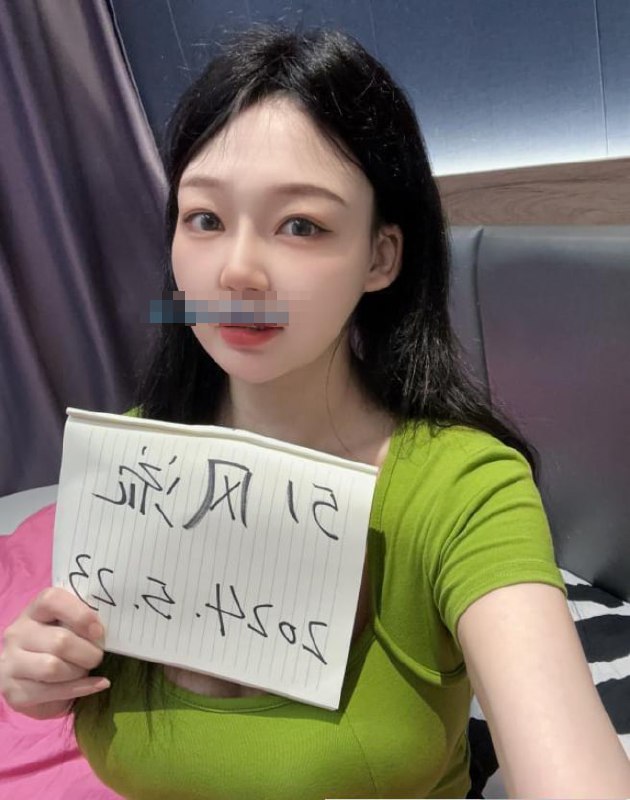 51风流
2024.5.23